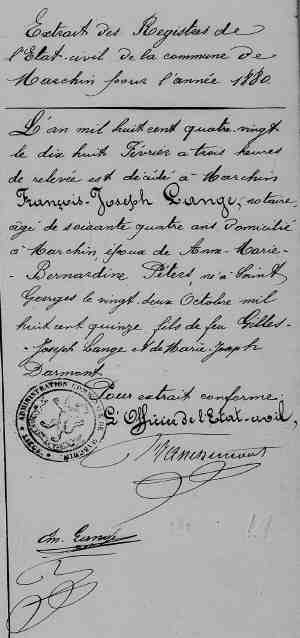 Extrait des Registres de
l'Etat-civil de la commune de
Marchin pour l'année 1880
L'an mil huit cent quatre-vingt
le dix huit Février à trois heures
de relevée est décédé à Marchin
François-Joseph Lange, notaire,
âgé de soixante quatre ans domicilié
à Marchin époux de Anne-Marie-
-Bernardine Péters, né à Saint
Georges le vingt-deux Octobre mil
huit cent quinze fils de feu Gilles-
-Joseph Lange et de Marie-Joseph
Darmont
Pour extrait conforme,
L'Officier de l'Etat-civil,
ADMINISTRATION COMMUNALE DE MARCHIN
Lange